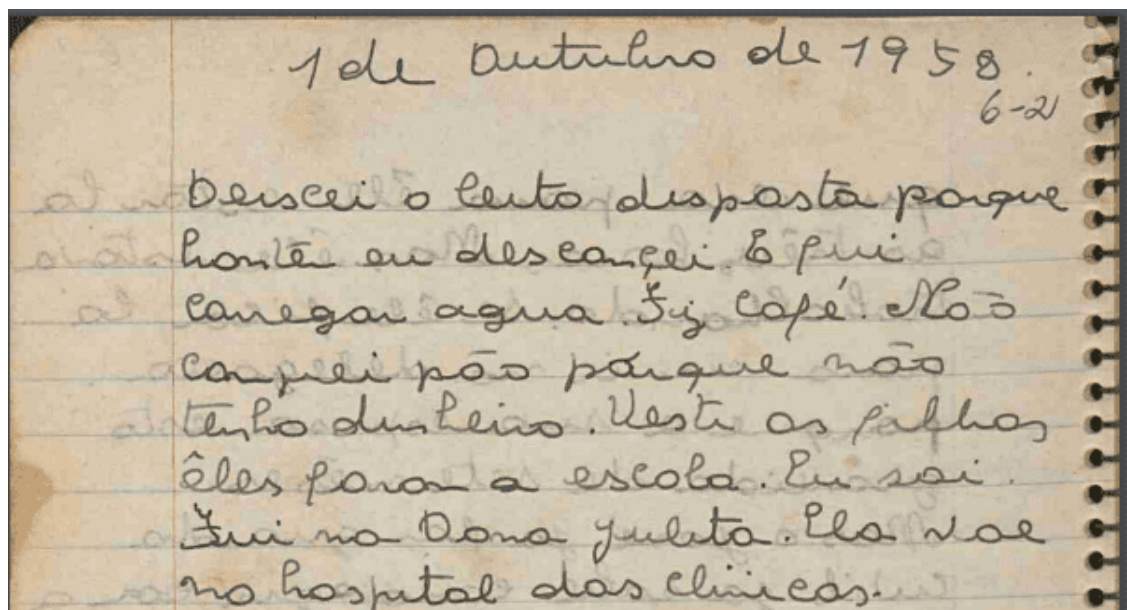 1 de Outubro de 1958.
6-2
Deiscei o leito disposta porque
honte eu descançei. E fui
carregar agua. Fiz café. Não
comprei pão porque não
tenho dinheiro. Vesti os filhos
êles foram a escola. Eu sai.
Fui na Dona Julita. Ela vae
no hospital das clinicas.